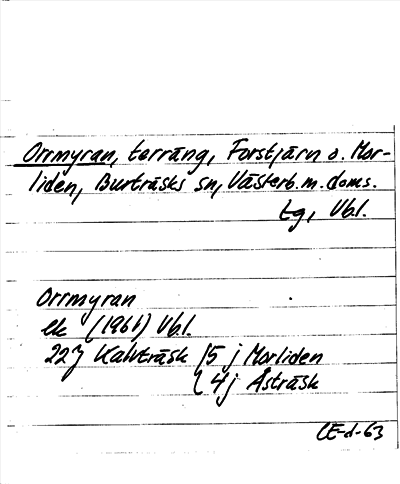 Orrmyran, terräng, Forstjärn o. Mor-
liden, Burträsks sn, Västerb. m. doms.
tg, Vbl.
Orrmyran
ek (1961) Vbl.
22J Kalvträsk { 5 j Morliden
{ 4 j Åsträsk
CE-d-63